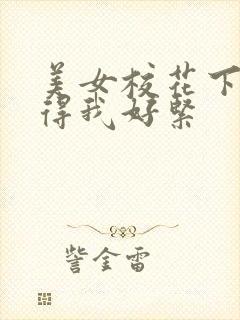 美女校花下
得我好紧
訾金雷